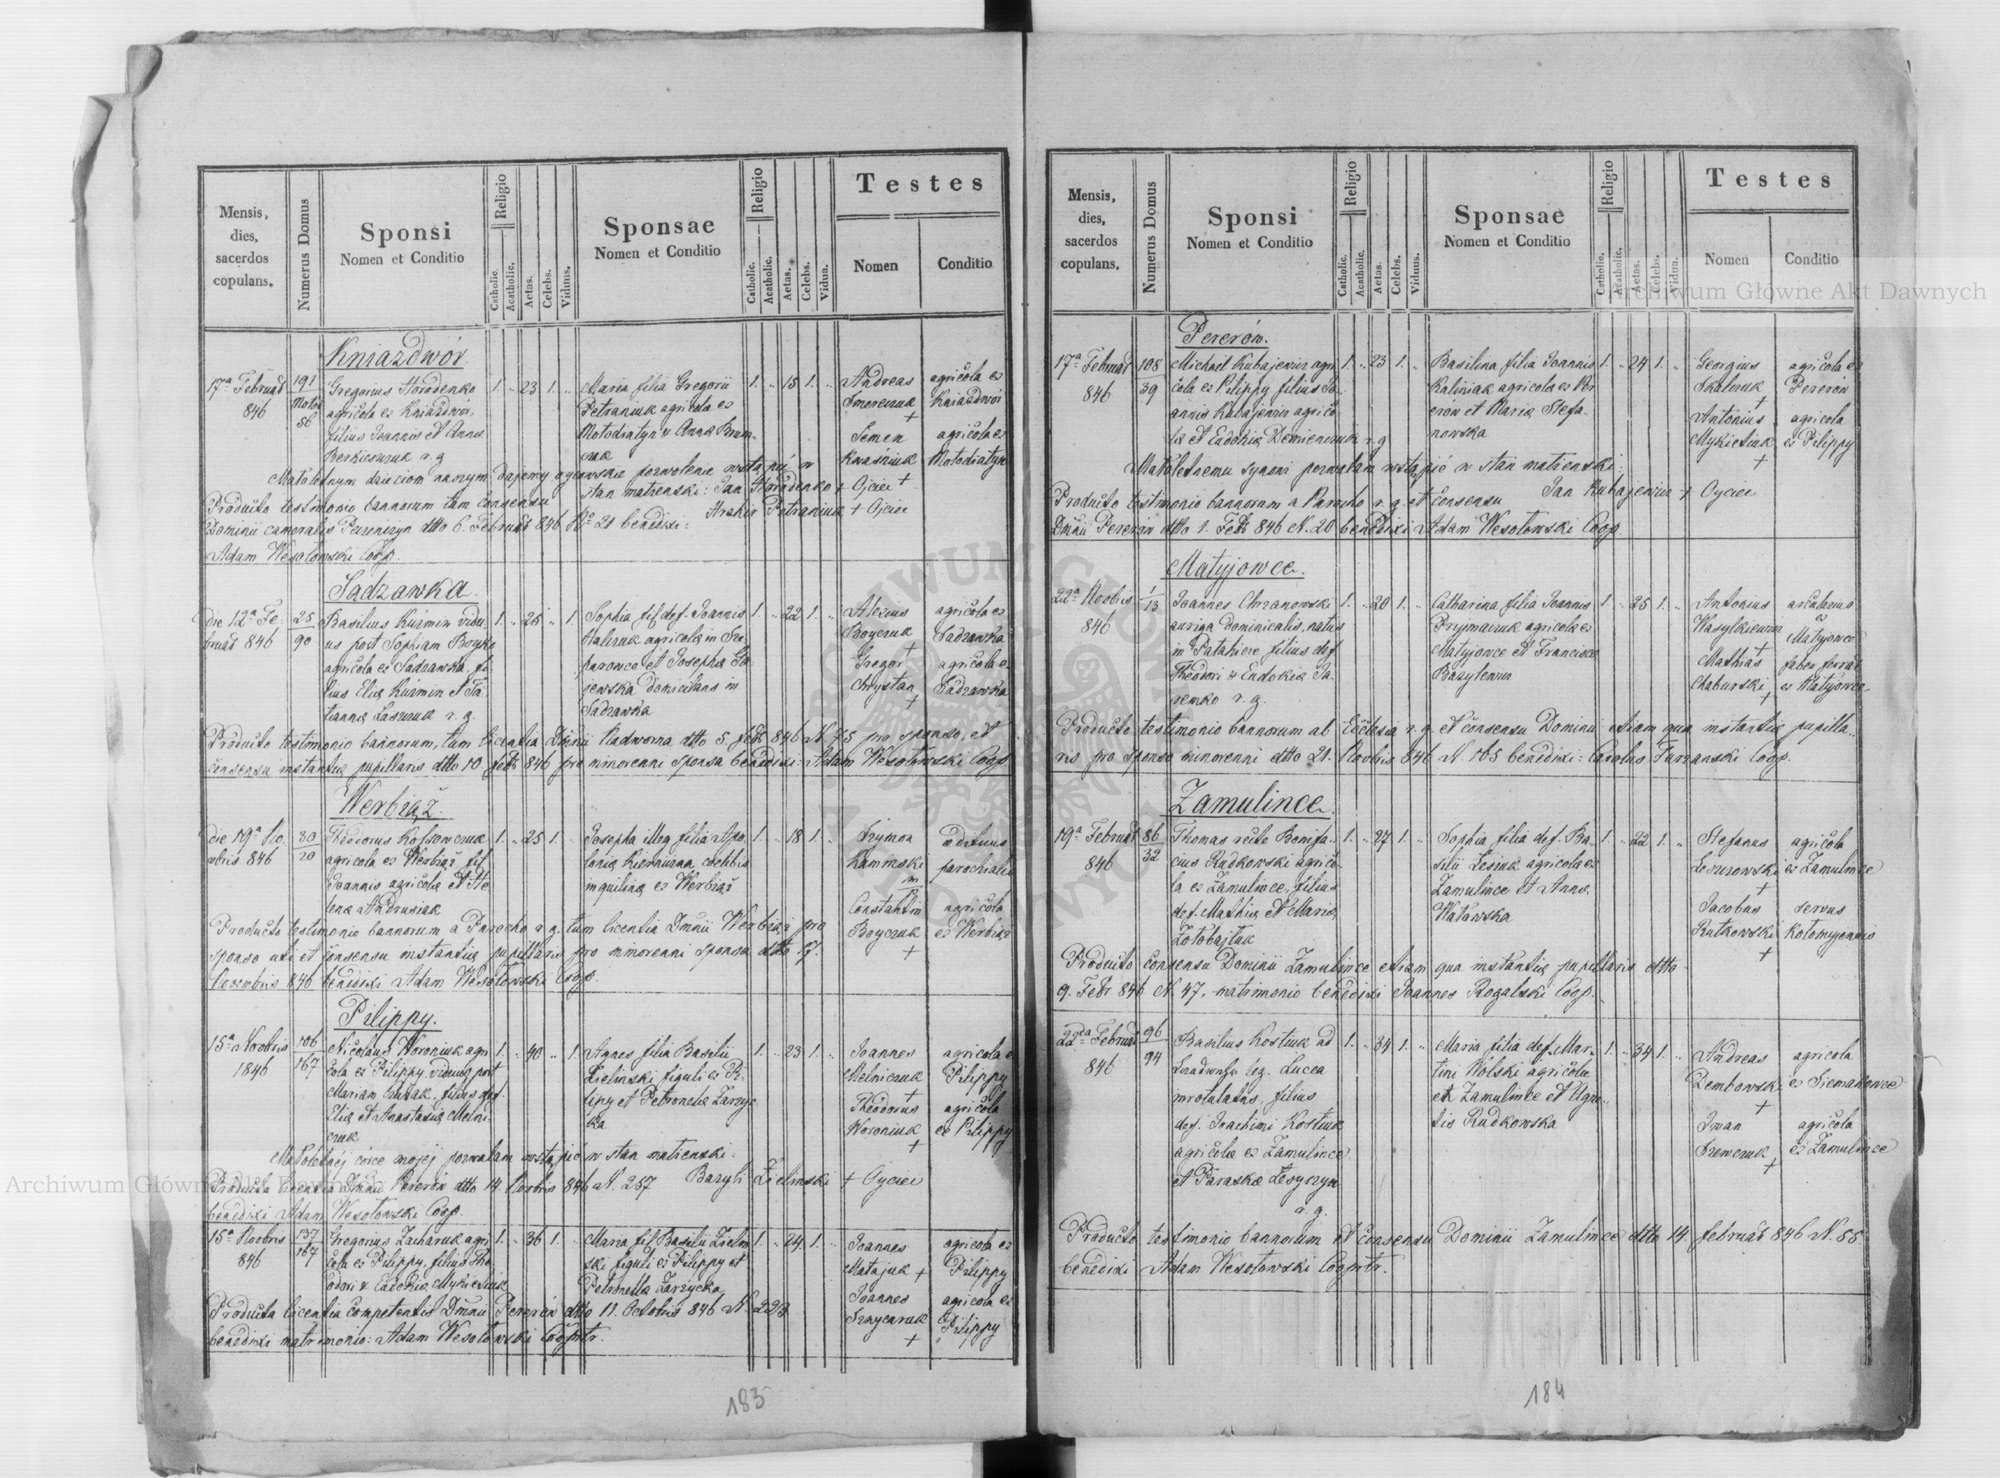 Mensis, dies, sacerdos copulans.
Numerus Domus
Sponsi
Nomen et Conditio
Religio
Catholic.
Acatholic.
Aetas.
Celebs.
Viduus.
Sponsae
Nomen et Conditio
Religio
Catholic.
Acatholic.
Aetas.
Celebs.
Vidua.
Testes
Nomen
Conditio
Kniazdwór
17ª Februar 846
191
86
Gregorius Horodenko
agricola ex Kniazdwór,
filius Joannis et Annae
r. g.
1. 23 1.
Maria filia Gregorii
Petraniuk agricola ex
Mołodiatyn et Anna
1. 18 1.
Andreas
+
agricola ex
Kniazdwór
Semen
Kwaśniuk
agricola ex
Mołodiatyn
Małoletnym dzieciom naszym dajemy oycowskie pozwolenie wstąpić w
stan małżenski: Jan Horodenko + Ojciec +
Producto testimonio bannorum tum consensu
Petraniuk + Ojciec
Dominii cameralis Peczeniżyn dtto 6. Februar 846 No 21 benedixi:
Adam Wesołowski Coop.
Sadzawka
die 12ª Februar 846
25
90
Basilius Kuźmin viduus
post Sophiam Boyko
agricola ex Sadzawka, filius
Eliae Kuźmin et Tatiannae
Laszczuk r. g.
1. 26 1
Sophia fil. def. Joannis
Haliczuk agricolae in
et Josepha
domicilians in
Sadzawka
1. 22 1.
Alexius
Boyczuk
+
agricola ex
Sadzawka
Gregor
Chrystan
+
agricola ex
Sadzawka
Producto testimonio bannorum, tum licentia Dominii Nadworna dtto 5. Febr 846 N. 75 pro sponso, et
consensu instantiae pupillaris dtto 10 Febr 846 pro minorenni sponsa benedixi: Adam Wesołowski Coop.
Werbiąż
die 19ª Novembris 846
30
20
Theodorus
agricola ex Werbiąż fil.
Joannis agricola et Helena
Andrusiak
1. 25 1.
Josepha illeg. filia Apolonia
coelibis
inquilina ex Werbiąż
1. 18 1.
Szymon
Kaminski
aedituus
parochialis
Constantin
Boyczuk
+
agricola
ex Werbiąż
Producto testimonio bannorum a Parocho r. g. tum licentia Dmnii Werbiąż pro
sponso uti et consensu instantiae pupillaris pro minorenni sponsa dtto 17.
Novembris 846 benedixi Adam Wesołowski Coop.
Pilippy.
15ª Novbris 1846
106
167
Nicolaus Woroniuk agricola
ex Pilippy viduus post
Mariam, filius def.
Eliae et Anastasiae Melniczuk
1. 40 1.
Agnes filia Basilii
Zielinski figuli ex Pilipy
et Petronella Zarzycka
1. 23 1.
Joannes
Melniczuk
+
agricola ex
Pilippy
Theodorus
Woroniuk
+
agricola
ex Pilippy
Małoletniej córce mojej pozwalam wstąpić w stan małżenski:
Bazyli Zielinski + Oyciec
Producta licentia Dmnii Pererów dtto 14. Novbris 846 N. 257
benedixi Adam Wesołowski Coop.
15ª Novbris 846
137
167
Gregorius Zacharuk agricola
ex Pilippy, filius Theodori
et Eudokia Mykietiuk
1. 36 1.
Maria fil. Basilii Zielinski
figuli ex Pilippy et
Petronella Zarzycka
1. 24. 1.
Joannes
Matajuk +
agricola ex
Pilippy
Joannes
+
agricola ex
Pilippy
Producta licentia competentis Dmnii Pererów dtto 11. Octobris 846 N 228
benedixi matrimonio: Adam Wesołowski Cooprtr.
183
Mensis, dies, sacerdos copulans.
Numerus Domus
Sponsi
Nomen et Conditio
Religio
Catholic.
Acatholic.
Aetas.
Celebs.
Viduus.
Sponsae
Nomen et Conditio
Religio
Catholic.
Acatholic.
Aetas.
Celebs.
Vidua.
Testes
Nomen
Conditio
Pererów.
17ª Februar 846
108
39
Michael Kubajewicz agricola
ex Pilippy filius Joannis
Kubajewicz agricola
et Eudokia Demienczuk r. g.
1. 23 1.
Basilina filia Joannis
Kaliniak agricola ex Pererów
et Maria Stefanowska
1. 24 1.
Georgius
+
agricola ex
Pererów
Antonius
Mykietiuk
+
agricola
ex Pilippy
Małoletnemu synowi pozwalam wstąpić w stan małżenski:
Jan Kubajewicz + Oyciec
Producto testimonio bannorum a Parocho r. g. et consensu
Dmnii Pererów dtto 1. Febr 846 N. 20 benedixi Adam Wesołowski Coop.
Matyjowce.
22ª Novbris 846
1
13
Joannes Chrzanowski
auriga dominicalis, natus
in Patahicze filius def.
Theodori et Eudokia Jaremko
r. g.
1. 20 1.
Catharina filia Joannis
Prymaczuk agricola ex
Matyjowce et Francisca
Bazylewicz
1. 25 1.
Antonius
Wasylkiewicz
+
ex
Matyjowce
Mathias
Chaburski +
faber ferrar
ex Matyjowce
Producto testimonio bannorum ab Ecclesia r. g. et consensu Dominii etiam qua instantia pupillaris
pro sponso minorenni dtto 21. Novbris 846 N. 105 benedixi: Carolus Coop.
Zamulince.
19ª Februar 846
86
32
Thomas recte Bonifacius
Rudkowski agricola
ex Zamulince, filius
def. Mathia et Maria
Zołobajłuk
1. 27 1.
Sophia filia def. Basilii
Lesiuk agricola ex
Zamulince et Anna
Watawska
1. 22 1.
Stefanus
+
agricola
ex Zamulince
Jacobus
Rutkowski
+
servus
Kolomyjensis
Producto consensu Dominii Zamulince etiam qua instantia pupillaris dtto
9. Febr 846 N. 47. matrimonio benedixi Joannes Rogalski Coop.
22da Februar 846
96
94
Basilius Kostiuk ad
leg. Lucca
introtulatus, filius
def. Joachimi Kostiuk
agricola ex Zamulince
et Paraska
r. g.
1. 34 1.
Maria filia def. Martini
Wolski agricola
ex Zamulince et Agnetis
Rudkowska
1. 34 1.
Andreas
Dembowski
+
agricola
ex Siemakowce
Iwan
Szewczuk +
agricola
ex Zamulince
Producto testimonio bannorum et consensu Dominii Zamulince dtto 14 Februar 846 N. 55
benedixi Adam Wesołowski Cooprtr.
184
Archiwum Główne Akt Dawnych
Archiwum Główne Akt Dawnych